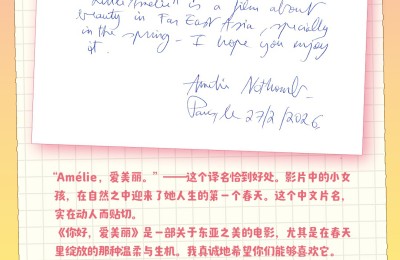 "Little Amélie" is a film about
beauty in Far East Asia, specially
in the spring – I hope you enjoy
it.
Amélie Nothomb
27/2/2026
“Amélie，爱美丽。”——这个译名恰到好处。影片中的小女
孩，在自然之中迎来了她人生的第一个春天。这个中文片名，
实在动人而贴切。
《你好，爱美丽》是一部关于东亚之美的电影，尤其是在春天
里绽放的那种温柔与生机。我真诚地希望你们能够喜欢它。